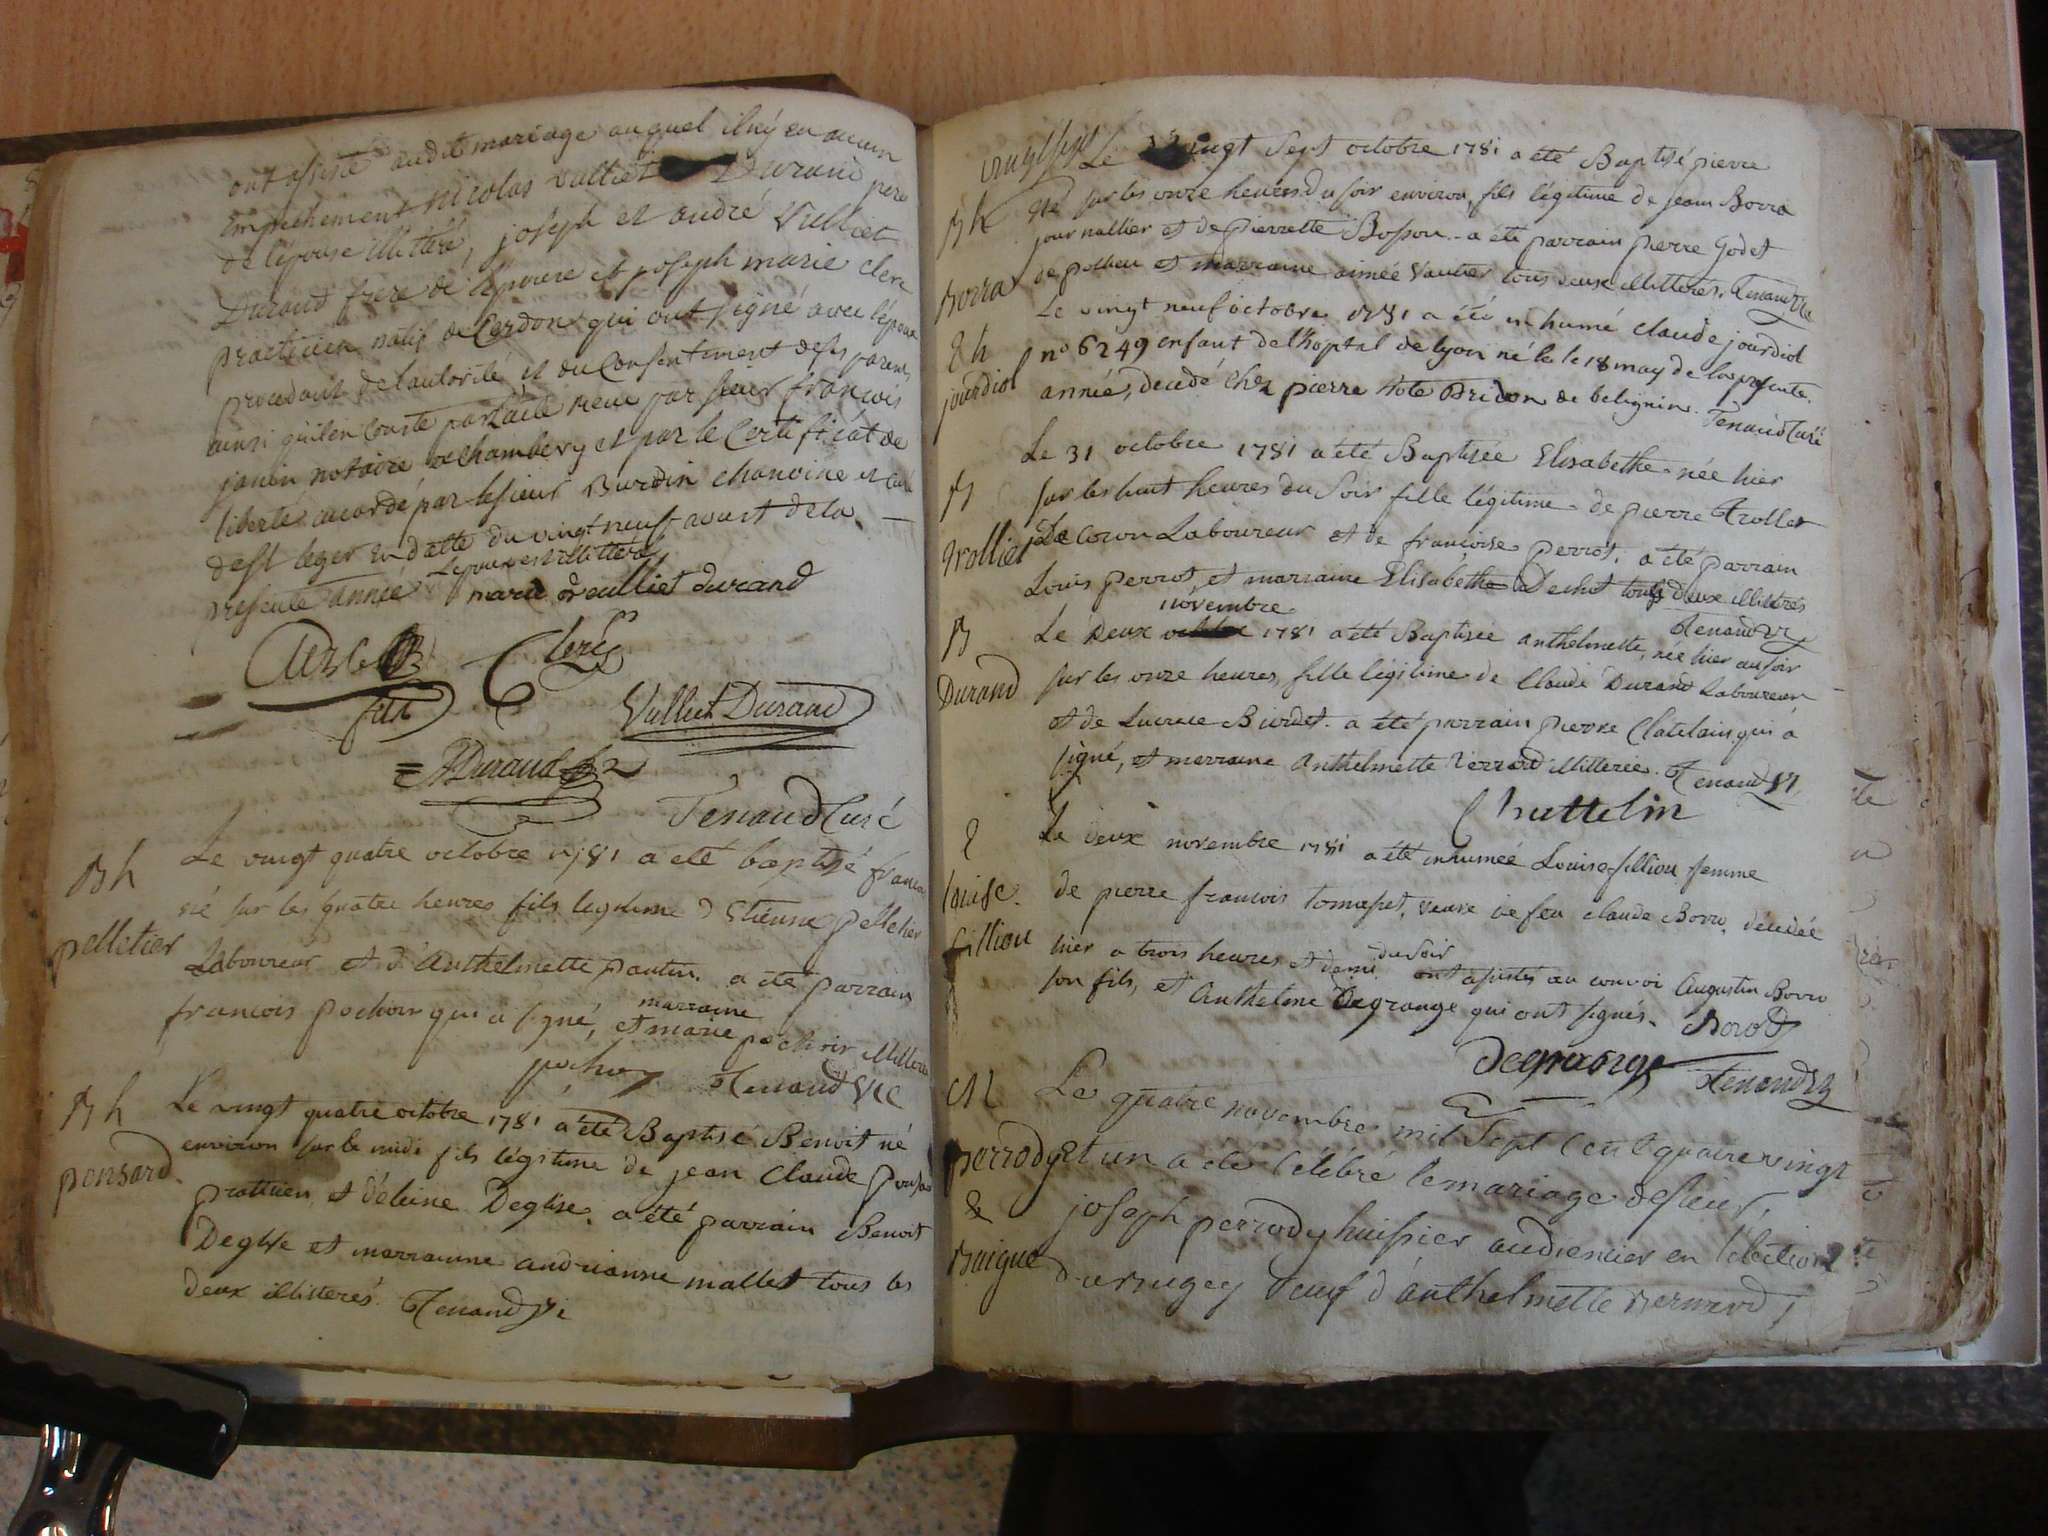 ont assisté audit mariage auquel il ny en aucun
Empechement nicolas Vulliet Durand pere
de l'épouse illitéré, joseph et andré Vulliet
Durand frere de l'epouse et joseph marie clerc
practicien natif de Cerdon qui ont signé avec l'epouse
procedant de l'autorité et du Consentement de ses parents
ainsi quil en Conste par l'acte recu par sieur françois
janin notaire a Chambery et par le Certificat de
liberté accordé par le sieur Burdin chanoine et curé
de st leger en datte du vingt neuf aoust de la
presente année Lepoux est illitteré
marie vulliet durand
Clerc
fils
Vulliet Durand
A Durand
Tenand Curé
Bh
pelletier
Le vingt quatre octobre 1781 a été baptisé francois
né sur les quatre heures fils legitime d'Etienne pelletier
Laboureur et d'Anthelmette pantin. a été parrain
francois pochoir qui a signé, et marraine marie pochoir illitteré
pochoy Tenand Vic
Bh
ponsard
Le vingt quatre octobre 1781 a été Baptisé Benoit né
environ sur le midi fils légitime de jean Claude ponsard
praticien, et d'eleine Deglise. a été parrain Benoit
Deglise et marrainne andrianne mallet tous les
deux illitterés. Tenand Vic
Le vingt sept octobre 1781 a été Baptisé pierre
Bh
Borra
Né sur les onze heures du soir environ, fils légitime de jean Borra
journallier et de pierrette Bosson. a été parrain pierre Godet
de pollieu et marraine aimée Vautier tous deux illitterés. Tenand Vic
Sh
jourdiol
Le vingt neuf octobre 1781 a été inhumé claude jourdiol
no 6249 enfant de l'hopital de lyon né le le 18 may de la presente
année, decedé chez pierre hote Bridon de belignin. Tenand Curé
B
trollier
Le 31 octobre 1781 a été Baptisée Elisabethe née hier
sur les huit heures du soir fille légitime de pierre Trollier
De Coron Laboureur et de francoise perrot. a été parrain
Louis perrot, et marraine Elisabethe Dechet tous deux illitterés
Tenand Vic
B
Durand
Le Deux novembre 1781 a été Baptisée anthelmette, née hier au soir
sur les onze heures, fille légitime de Claude Durand Laboureur
et de Lucrece Biordet. a été parrain pierre Chatelain qui a
signé, et marraine Anthelmette Verrard illitterée. Tenand Vi
Chattelin
S
louise
fillion
Le deux novembre 1781 a été inhumée Louise fillion femme
de pierre francois tomasset, veuve de feu claude Borro, decedée
hier a trois heures et demi du soir ont assistés au convoi Augustin Borro
son fils, et Anthelme Degrange qui ont signés. Borod
Degrange Tenand Vi
M
perrody
&
Baigue
Le quatre novembre mil Sept Cent quatre vingt
Et un a été Célébré le mariage de sieur,
joseph perrody huissier audiencier en l'élection
du bugey veuf d'anthelmette Bernard,